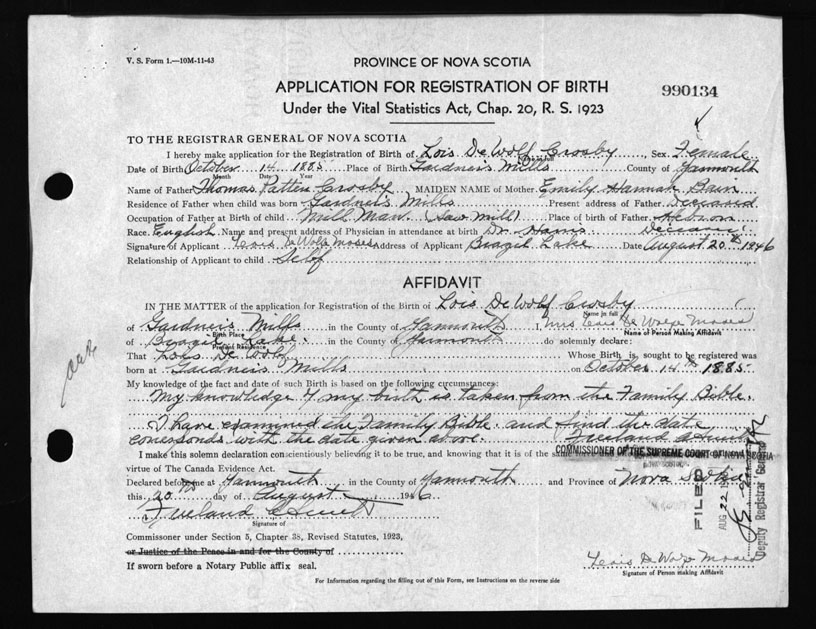 V. S. Form 1.—10M-11-43
PROVINCE OF NOVA SCOTIA
APPLICATION FOR REGISTRATION OF BIRTH
990134
Under the Vital Statistics Act, Chap. 20, R. S. 1923
TO THE REGISTRAR GENERAL OF NOVA SCOTIA
I hereby make application for the Registration of Birth of Lois DeWolf Crosby Sex Female
Date of Birth October 14 1885 Place of Birth Gardner's Mills County of Yarmouth
Month Date Year
Name of Father Thomas Patten Crosby MAIDEN NAME of Mother Emily Hannah Bain
Residence of Father when child was born Gardner's Mills Present address of Father Deceased
Occupation of Father at Birth of child Mill Man (Saw Mill) Place of birth of Father Hebron
Race English Name and present address of Physician in attendance at birth Dr. Harris Deceased
Signature of Applicant Lois DeWolf Moses Address of Applicant Brazil Lake Date August 20th 1946
Relationship of Applicant to child Self
AFFIDAVIT
IN THE MATTER of the application for Registration of the Birth of Lois DeWolf Crosby
Name in full
of Gardner's Mills in the County of Yarmouth I, Mrs Lois DeWolfe Moses
Birth Place Name of Person Making Affidavit
of Brazil Lake in the County of Yarmouth do solemnly declare:
Present Residence
That Lois DeWolf Whose Birth is sought to be registered was
born at Gardner's Mills on October 14th 1885
My knowledge of the fact and date of such Birth is based on the following circumstances:
My knowledge of my birth is taken from the Family Bible.
I have examined the Family Bible and find the date
corresponds with the date given above. Freeland
COMMISSIONER OF THE SUPREME COURT OF NOVA SCOTIA
I make this solemn declaration conscientiously believing it to be true, and knowing that it is of the same
virtue of The Canada Evidence Act.
Declared before me at Yarmouth in the County of Yarmouth and Province of Nova Scotia
this 20th day of August 1946
Freeland
Signature of
Commissioner under Section 5, Chapter 38, Revised Statutes, 1923,
or Justice of the Peace in and for the County of
If sworn before a Notary Public affix seal.
Lois DeWolfe Moses
Signature of Person making Affidavit
For Information regarding the filling out of this Form, see Instructions on the reverse side
FILED
AUG 22
Deputy Registrar General